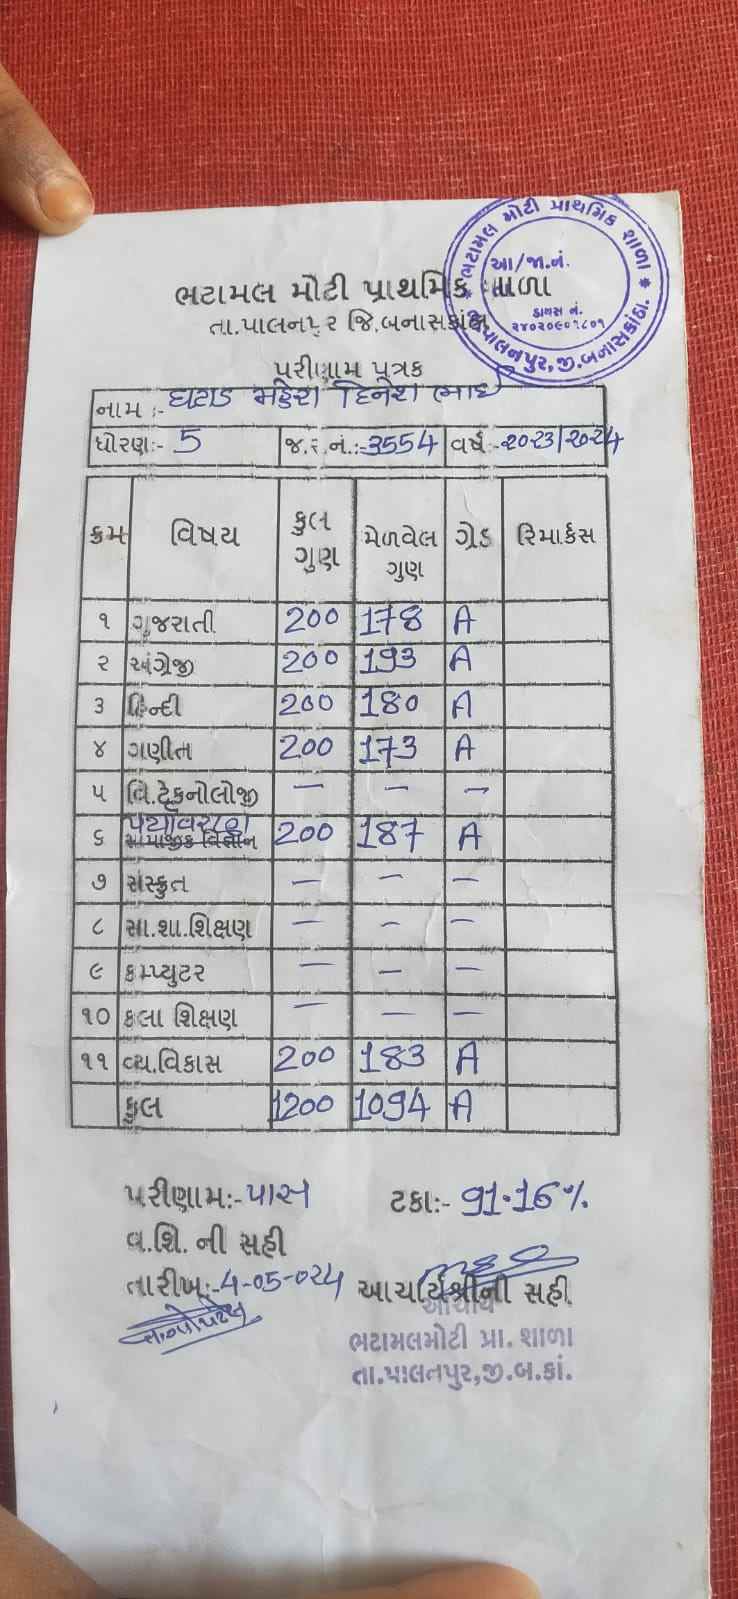 ભટામલ મોટી પ્રાથમિક શાળા
આ/જા.નં.
ડાયસ નં.
૨૪૦૨૦૯૦૧૮૦૧
પાલનપુર,જી.બનાસકાંઠા.
ભટામલ મોટી પ્રાથમિક શાળા
તા.પાલનપુર જિ.બનાસકાંઠા
પરીણામ પત્રક
નામ :- દિનેશ ભાઈ
ધોરણ:- 5 જ.ર.નં.:-3554 વર્ષ:-૨૦૨3/૨૦૨4
ક્રમ વિષય કુલ ગુણ મેળવેલ ગુણ ગ્રેડ રિમાર્કસ
૧ ગુજરાતી 200 178 A
૨ અંગ્રેજી 200 193 A
૩ હિન્દી 200 180 A
૪ ગણીત 200 173 A
૫ વિ.ટેકનોલોજી — — —
પર્યાવરણ
૬ સામાજીક વિજ્ઞાન 200 187 A
૭ સંસ્કૃત — — —
૮ સા.શા.શિક્ષણ — — —
૯ કમ્પ્યુટર — — —
૧૦ કલા શિક્ષણ — — —
૧૧ વ્ય.વિકાસ 200 183 A
કુલ 1200 1094 A
પરીણામ:- પાસ ટકા:- 91.16%
વ.શિ. ની સહી
તારીખ:-4-05-024 આચાર્યશ્રીની સહી
આચાર્ય
ભટામલમોટી પ્રા. શાળા
તા.પાલનપુર,જી.બ.કાં.